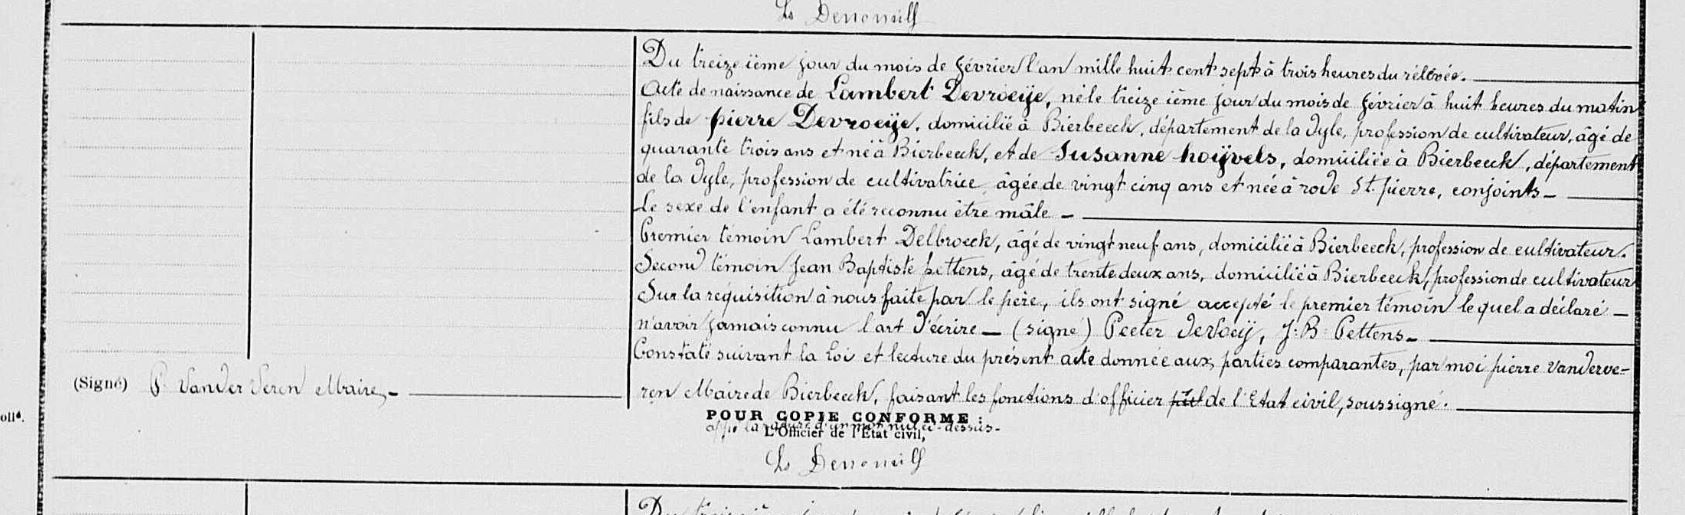 Du treizeième jour du mois de février l'an mille huit cent sept à trois heures du rélévée.
Acte de naissance de Lambert Devroeije, né le treizeième jour du mois de février à huit heures du matin
fils de pierre Devroeije, domicilié à Bierbeeck, département de la Dyle, profession de cultivateur, âgé de
quarante trois ans et né à Bierbeeck, et de Susanne hoijvels, domiciliée à Bierbeeck, département
de la Dyle, profession de cultivatrice, âgée de vingt cinq ans et née à rode St. pierre, conjoints –
Le sexe de l'enfant a été reconnu être mâle –
Premier témoin Lambert Delbroeck, âgé de vingt neuf ans, domicilié à Bierbeeck, profession de cultivateur.
Second témoin Jean Baptiste pettens, âgé de trente deux ans, domicilié à Bierbeeck, profession de cultivateur
Sur la réquisition à nous faite par le père, ils ont signé accepté le premier témoin lequel a déclaré –
n'avoir jamais connu l'art d'écrire – (signé) Peeter J:B: Pettens –
Constaté suivant la Loi et lecture du présent acte donnée aux parties comparantes, par moi pierre vanderve-
(Signé) P. Vander Veren Maire –
ren Maire de Bierbeeck, faisant les fonctions d'officier de l'Etat civil, soussigné.
POUR COPIE CONFORME :
L'Officier de l'Etat civil,